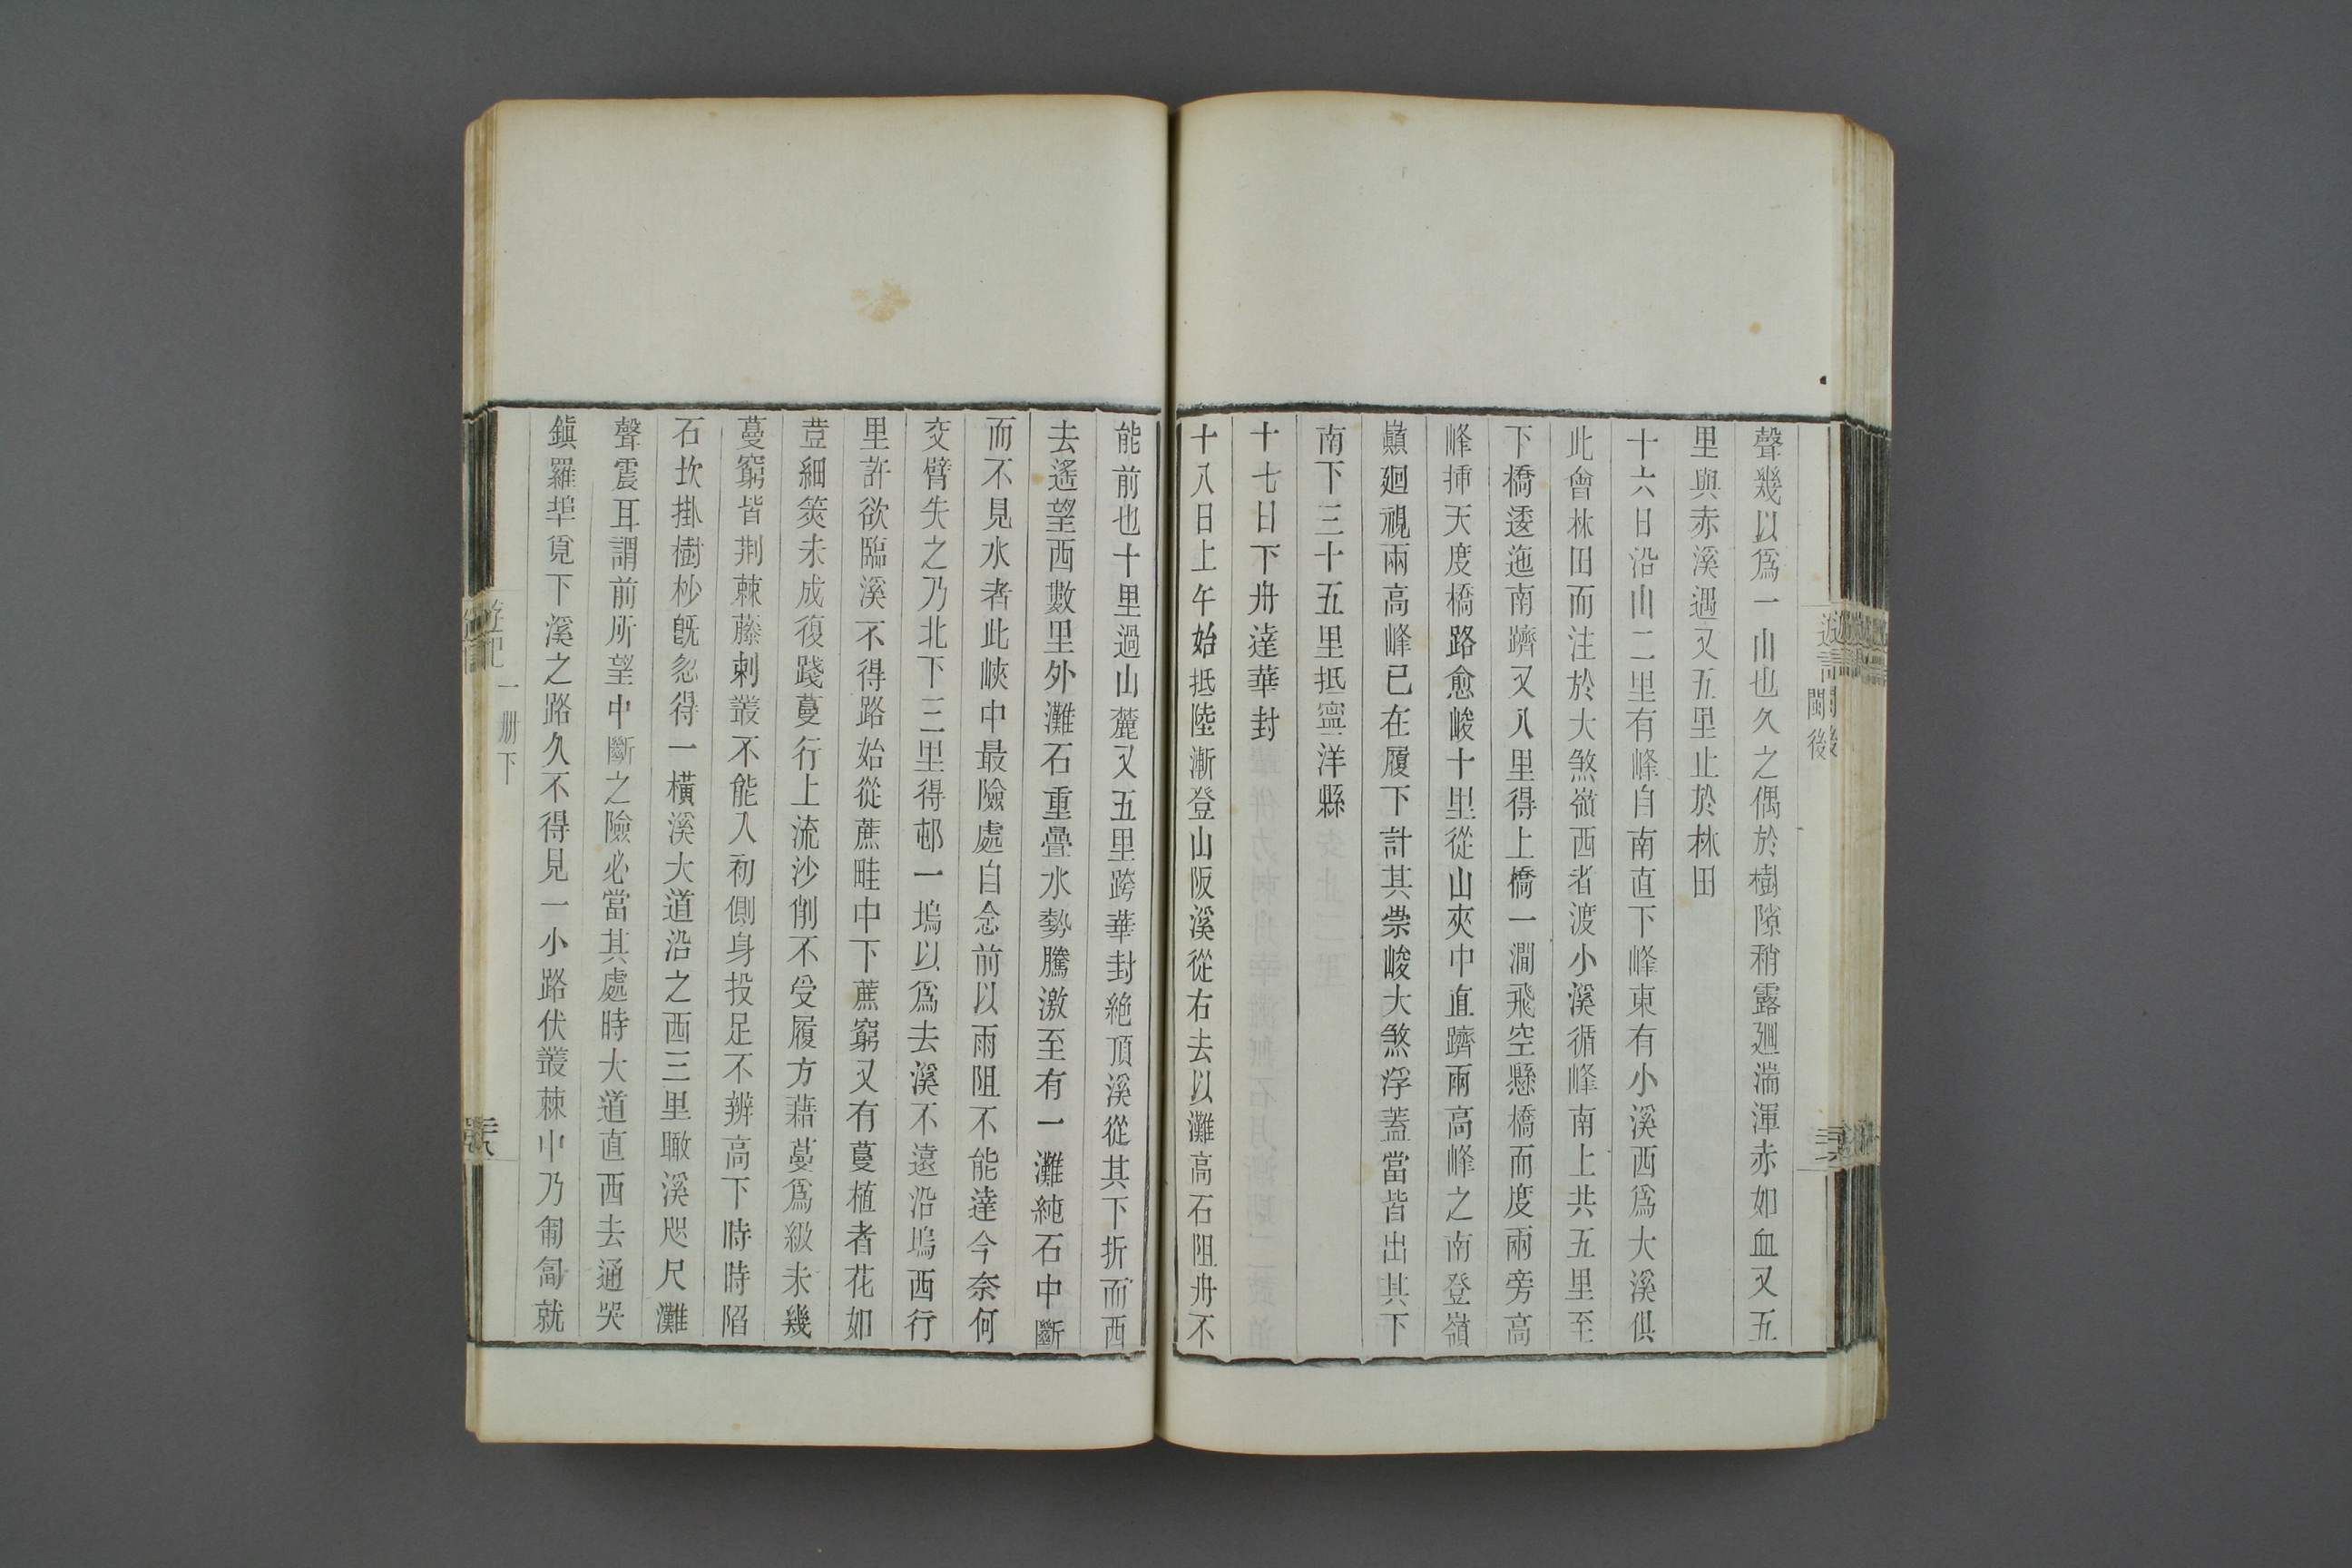 聲幾以爲一山也久之偶於樹隙稍露廻湍渾赤如血又五
里與赤溪遇又五里止於林田
十六日沿山二里有峰自南直下峰東有小溪西爲大溪俱
此會林田而注於大煞嶺西者渡小溪循峰南上共五里至
下橋逶迤南躋又八里得上橋一澗飛空懸橋而度兩旁高
峰揷天度橋路愈峻十里從山夾中直躋兩高峰之南登嶺
巓廻視兩高峰已在履下計其崇峻大煞浮蓋當皆出其下
南下三十五里抵寧洋縣
十七日下舟達華封
十八日上午始抵陸漸登山阪溪從右去以灘高石阻舟不
能前也十里過山麓又五里跨華封絶頂溪從其下折而西
去遙望西數里外灘石重疊水勢騰激至有一灘純石中斷
而不見水者此峽中最險處自念前以雨阻不能達今奈何
交臂失之乃北下三里得邨一塢以爲去溪不遠沿塢西行
里許欲臨溪不得路始從蔗畦中下蔗窮又有蔓植者花如
荳細莢未成復踐蔓行上流沙削不受履方藉蔓爲級未幾
蔓窮皆荆棘藤刺叢不能入初側身投足不辨高下時時陷
石坎掛樹杪旣忽得一橫溪大道沿之西三里瞰溪咫尺灘
聲震耳謂前所望中斷之險必當其處時大道直西去通吳
鎭羅埠覓下溪之路久不得見一小路伏叢棘中乃匍匐就
遊記
閩後
一册下